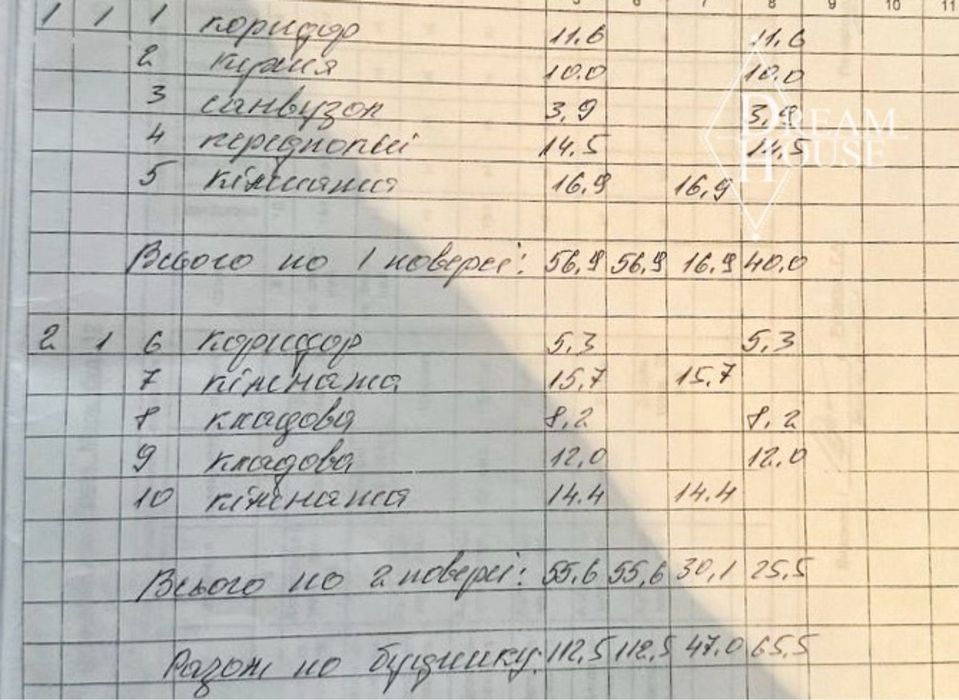 5 6 7 8 9 10 11
1 1 1 коридор 11.6 11.6
2 кухня 10.0 10.0
3 санвузол 3,9 3,9
4 14.5 14.5
5 кімната 16,9 16,9
DREAM HOUSE
Всього по 1 поверсі: 56,9 56,9 16.9 40.0
2 1 6 коридор 5,3 5,3
7 кімната 15,7 15,7
8 кладова 8,2 8,2
9 кладова 12,0 12.0
10 кімната 14.4 14.4
Всього по 2 поверсі: 55,6 55,6 30,1 25,5
Разом по будинку: 112,5 112,5 47.0 65.5